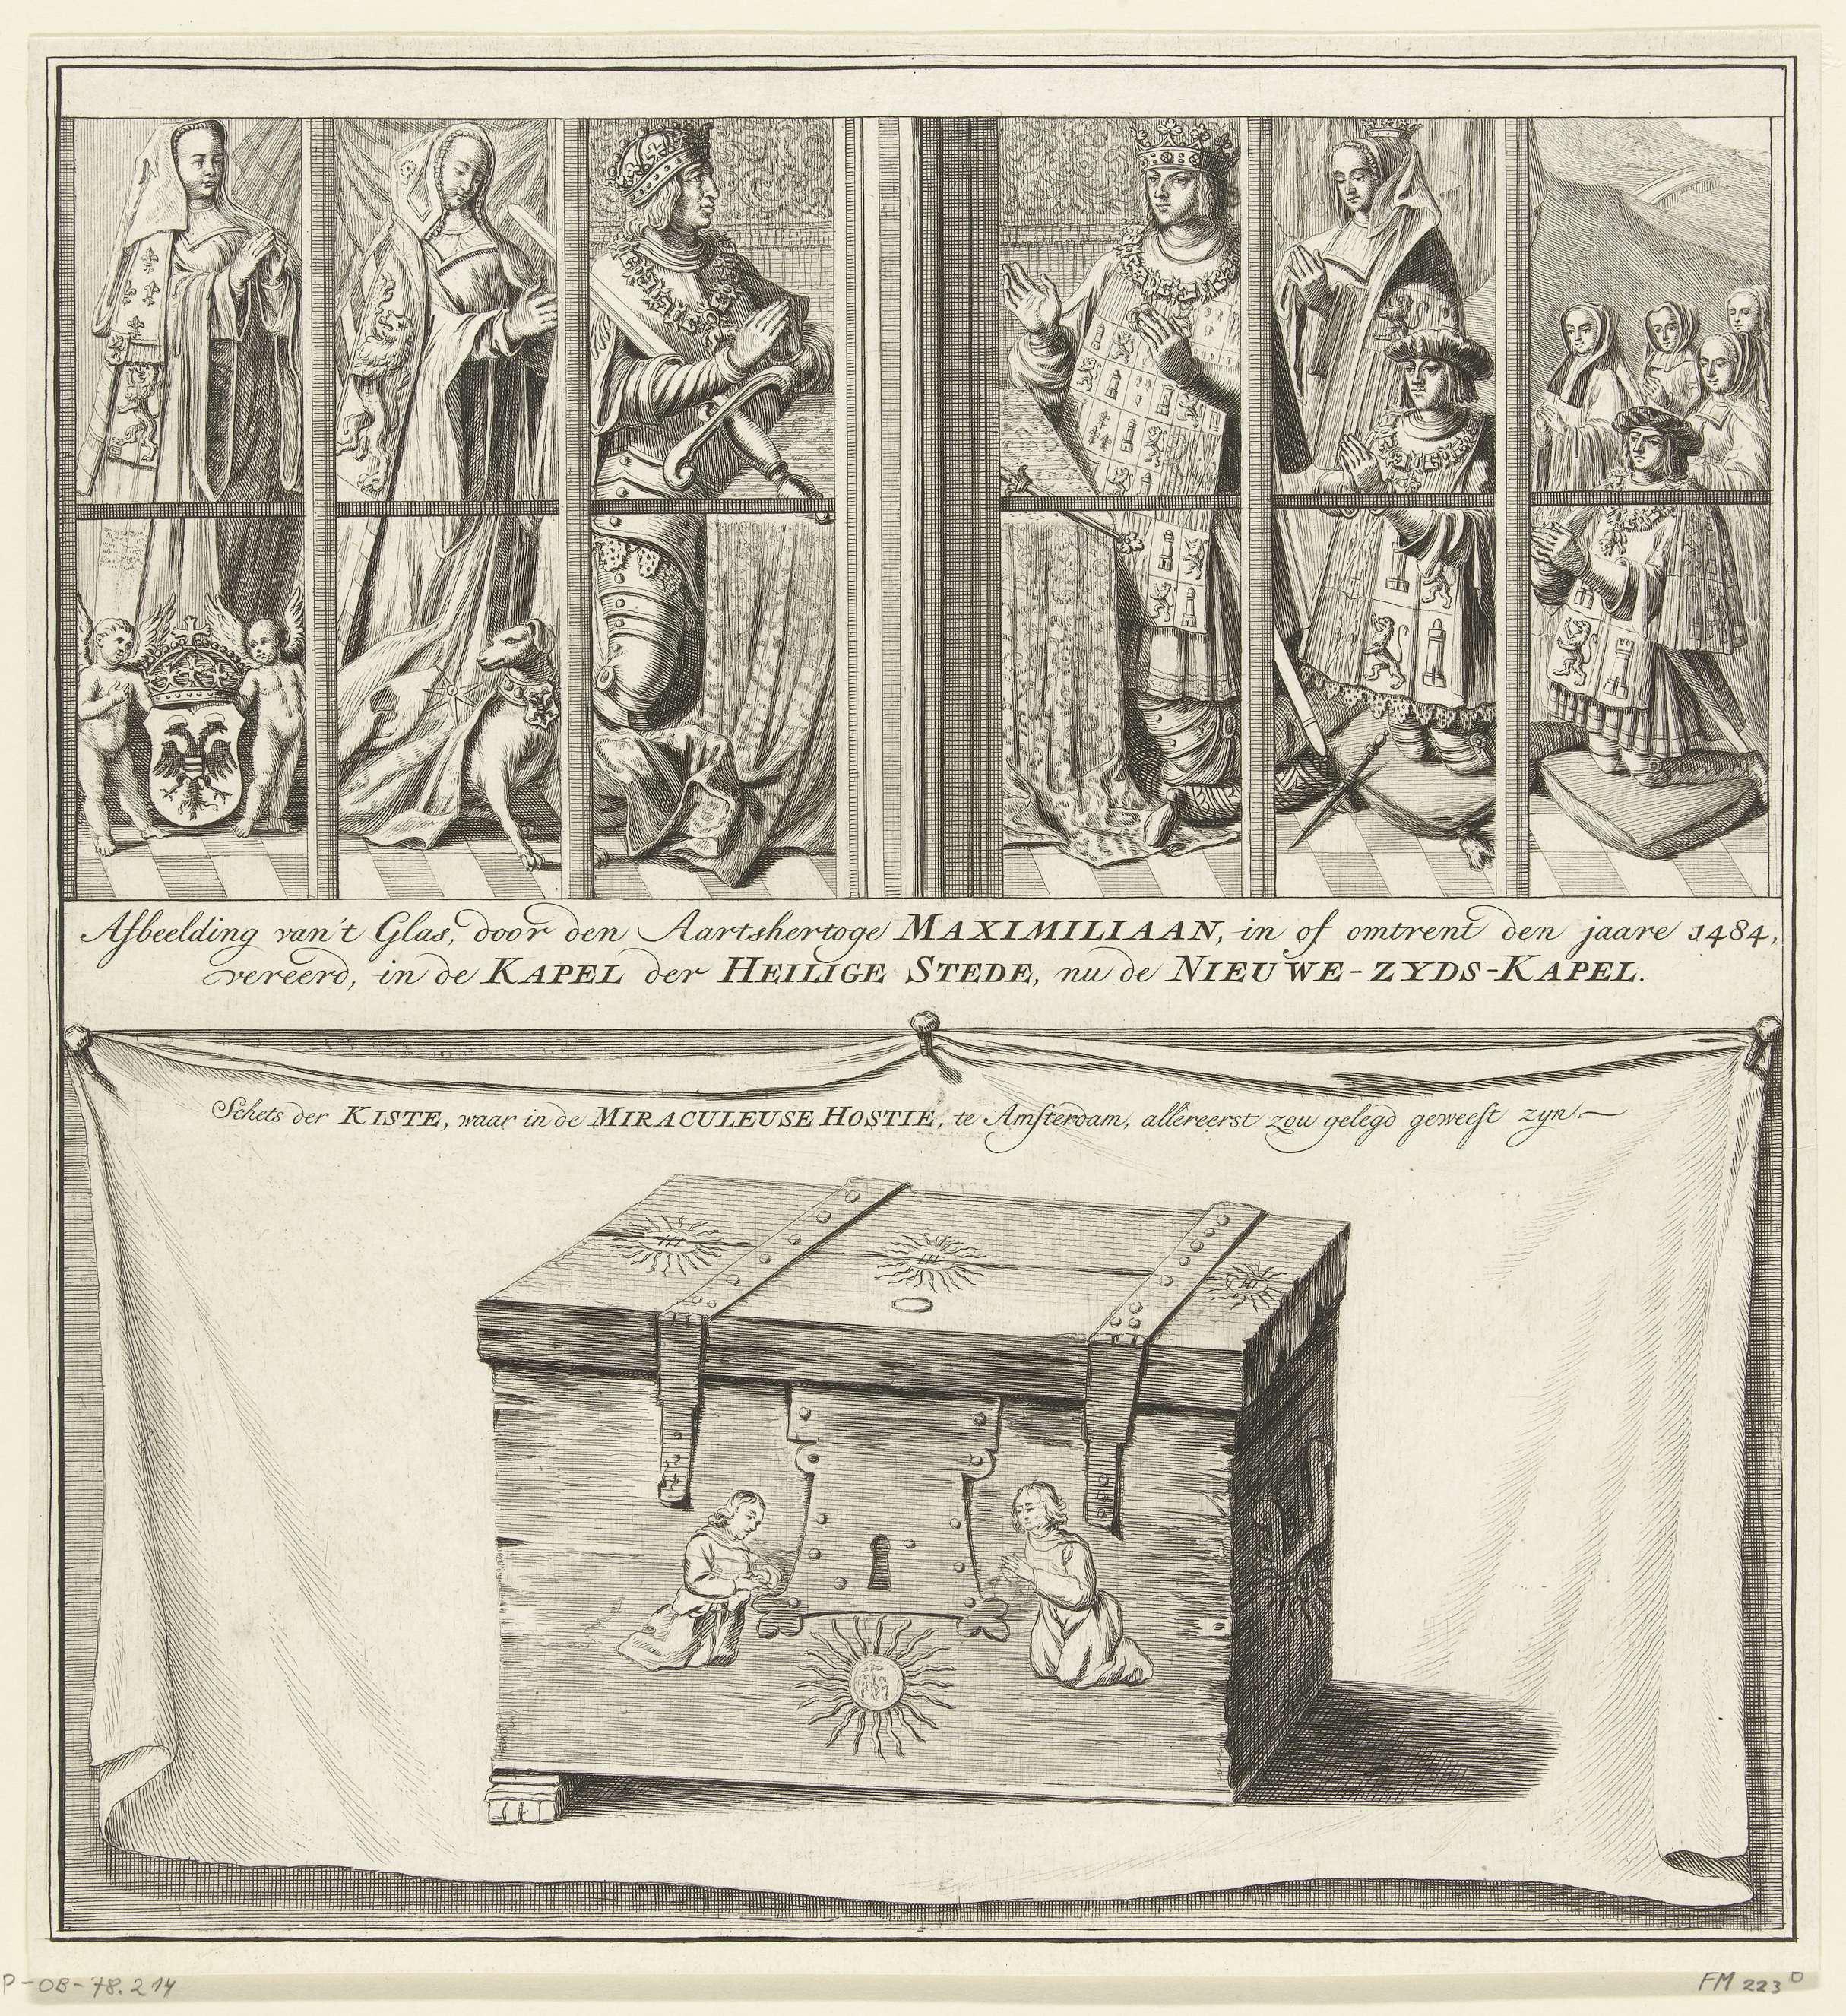 Afbeelding van't Glas, door den Aartshertoge MAXIMILIAAN, in of omtrent den jaare 1484,
vereerd, in de KAPEL der HEILIGE STEDE, nu de NIEUWE-ZYDS-KAPEL.
Schets der KISTE, waar in de MIRACULEUSE HOSTIE, te Amsterdam, allereerst zou gelegd geweest zyn.
P-OB-78.214
FM 223 D